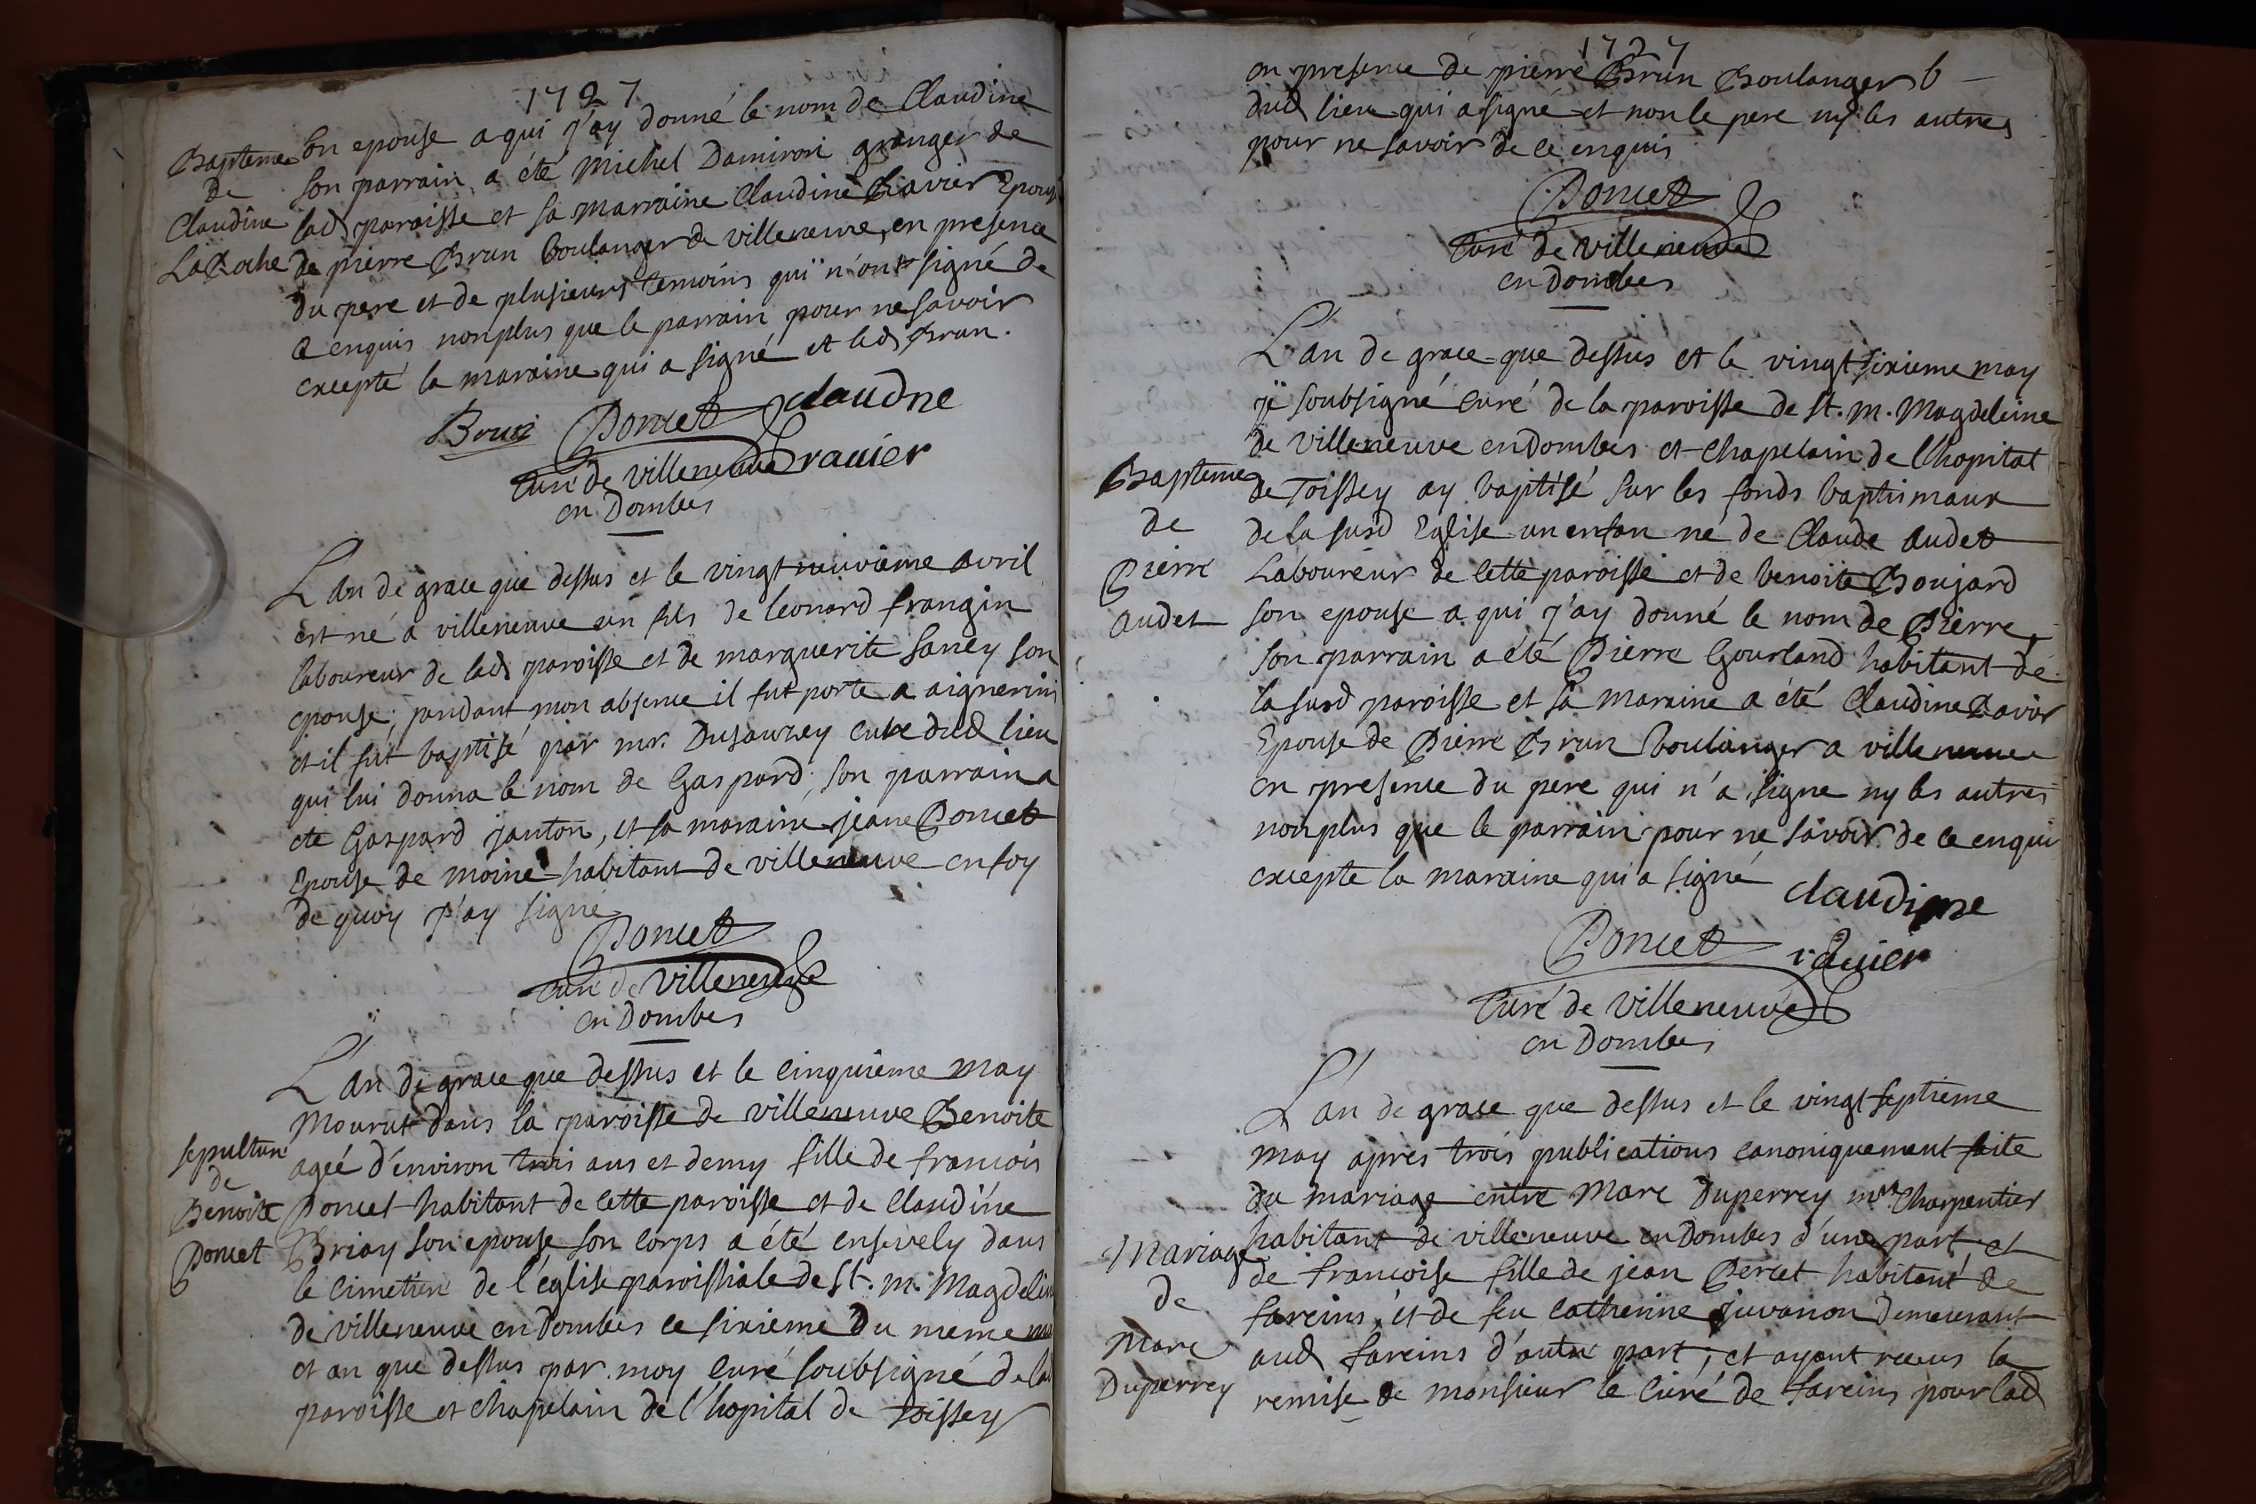 1727
Bapteme
de
Claudine
LaRoche
Son epouse a qui j'ay donné le nom de Claudine
son parrain a été Michel Damiron granger de
lad paroisse et sa marraine Claudine Ravier Epouse
de pierre Brun boulanger de villeneuve, en presence
du pere et de plusieurs temoins qui n'ont signé de
ce enquis nonplus que le parrain pour ne savoir
excepté la maraine qui a signé et led Brun.
Brun Poncet claudne
ravier
Curé de villeneuve
en Dombes
L'an de grace que dessus et le vingt neuvieme avril
est né a villeneuve un fils de leonard frangin
laboureur de lad paroisse et de marguerite Saney son
epouse; pendant mon absence il fut porte a aignerins
et il fut baptisé par mr. Dusauzey curé dud lieu
qui lui donna le nom de Gaspard; son parrain a
ete Gaspard janton, et sa maraine jeane Poncet
Epouse de moine habitant de villeneuve en foy
de quoy j'ay signé
Poncet
curé de villeneuve
en Dombes
sepulture
de
Benoite
Poncet
L'an de grace que dessus et le cinquieme may
Mourut dans la paroisse de villeneuve Benoite
ageé d'environ trois ans et demy fille de francois
Poncet habitant de cette paroisse et de Claudine
Briay son epouse son corps a été ensevely dans
le cimetiere de l'eglise paroissiale de St. M. Magdelein
de villeneuve en Dombes ce sixieme du meme mois
et an que dessus par moy curé soubsigné de lad
paroisse et chapelain de l'hopital de toissey
1727
en presence de pierre Brun Boulanger b
dud lieu qui a signé et non le pere ny les autres
pour ne savoir de ce enquis
Poncet
Curé de villeneuve
en Dombes
Bapteme
de
Pierre
audet
L'an de grace que dessus et le vingt sixieme may
je soubsigné curé de la paroisse de St. M. Magdeleine
de villeneuve en Dombes et chapelain de l'hopital
de Toissey ay baptisé sur les fonds baptismaux
de la susd Eglise un enfan né de Claude audet
Laboureur de cette paroisse et de benoite Boujard
son epouse a qui j'ay donné le nom de Pierre,
son parrain a été Pierre Gourland habitant de
la susd paroisse et sa maraine a été Claudine Ravier
Epouse de Pierre Brun boulanger a villeneuve
en presence du pere qui n'a signe ny les autres
nonplus que le parrain pour ne savoir de ce enquis
excepte la maraine qui a signé claudine
Poncet ravier
Curé de villeneuve
en Dombes
Mariage
de
Marc
Duperrey
L'an de grace que dessus et le vingt septieme
may apres trois publications canoniquement faite
du mariage entre Marc Duperrey mre Charpentier
habitant de villeneuve en Dombes d'une part, et
de francoise fille de jean Percet habitant de
fareins, et de feu Catherine juvanon demeurant
aud fareins d'autre part; et ayant receus la
remise de monsieur le curé de fareins pour lad